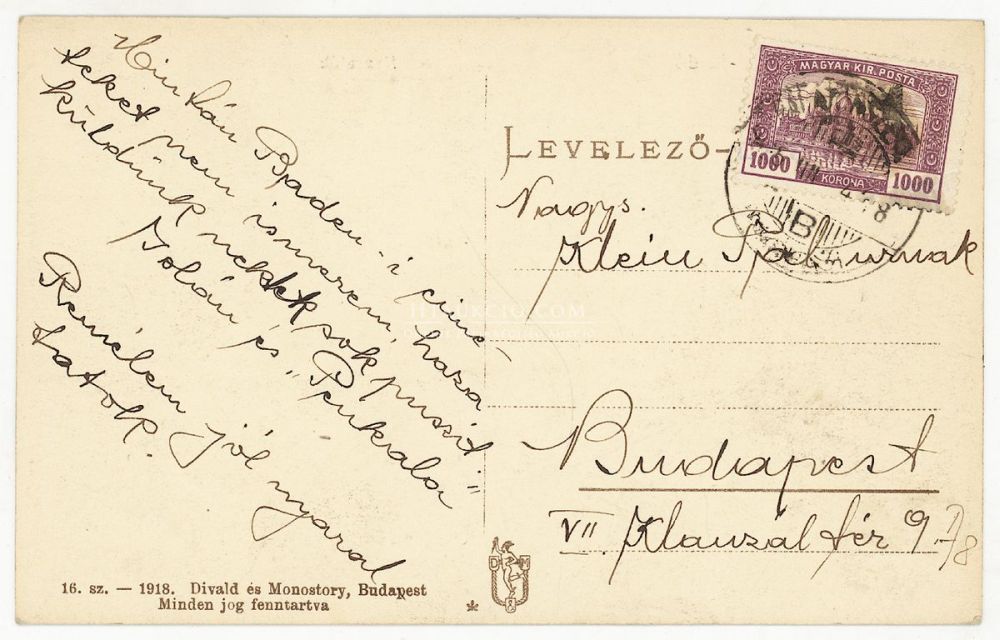 Miután Baden-i címe-
teket nem ismerem, haza
küldünk nektek sok puszit
Jolán és "Penkala"
Remélem jól nyaral
tatok.
LEVELEZŐ-
MAGYAR KIR. POSTA
1000 KORONA 1000
B
Nagys.
Klein Pálurnak
Budapest
VII Klauzál tér 9.
HUNGARICANA.COM
16. sz. — 1918. Divald és Monostory, Budapest
Minden jog fenntartva
D M